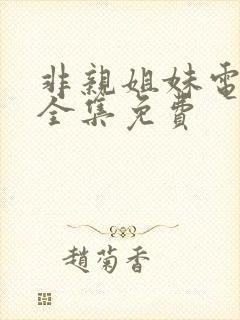 非親姐妹電
全集免費
趙菊香